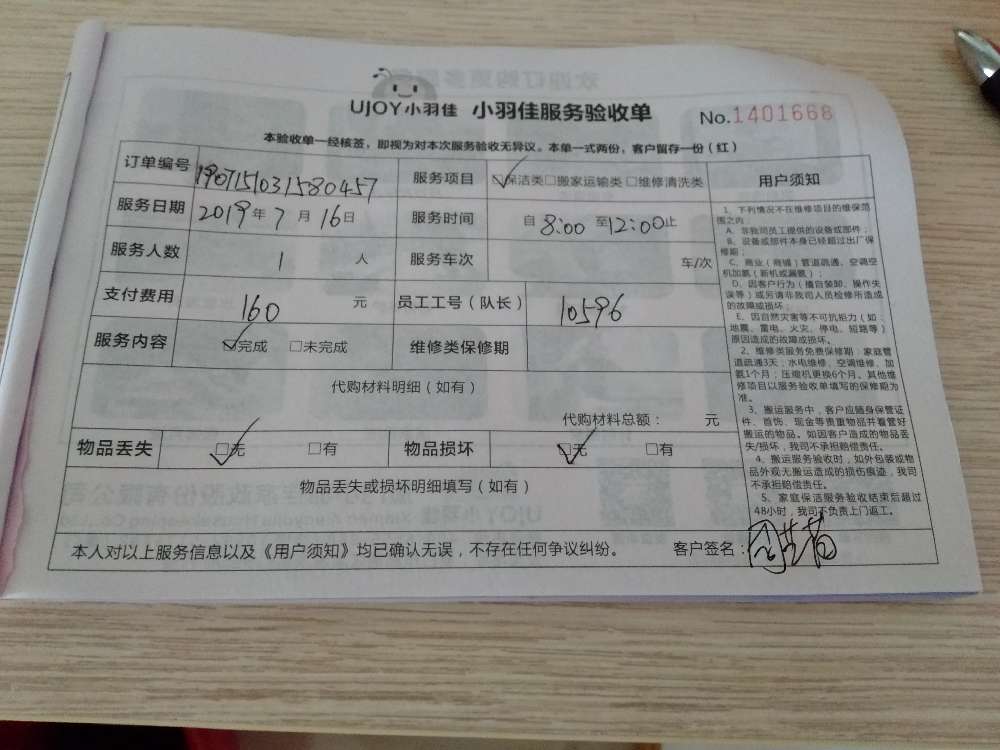 UJOY小羽佳 小羽佳服务验收单 No.1401668
本验收单一经核签，即视为对本次服务验收无异议。本单一式两份，客户留存一份（红）
订单编号 1907151031580457 服务项目 保洁类□搬家运输类□维修清洗类
服务日期 2019年7月16日 服务时间 自8:00至12:00止
服务人数 1人 服务车次 车/次
支付费用 160元 员工工号（队长） 10596
服务内容 完成 □未完成 维修类保修期
代购材料明细（如有）
代购材料总额： 元
物品丢失 □无 □有 物品损坏 □无 □有
物品丢失或损坏明细填写（如有）
用户须知
1、下列情况不在维修项目的维保范
围之内：
A、非我司员工提供的设备或部件；
B、设备或部件本身已经超过出厂保
修期；
C、商业（商铺）管道疏通、空调空
机加氟（新机或漏氟）；
D、因客户行为（擅自装卸、操作失
误等）或另请非我司人员检修所造成
的故障或损坏；
E、因自然灾害等不可抗拒力（如：
地震、雷电、火灾、停电、短路等）
原因造成的故障或损坏。
2、维修类服务免费保修期：家庭管
道疏通3天；水电维修、空调维修、加
氨1个月；压缩机更换6个月。其他维
修项目以服务验收单填写的保修期为
准。
3、搬运服务中，客户应随身保管证
件、首饰、现金等贵重物品并看管好
搬运的物品。如因客户造成的物品丢
失/损坏，我司不承担赔偿责任。
4、搬运服务验收时，如外包装或物
品外观无搬运造成的损伤痕迹，我司
不承担赔偿责任。
5、家庭保洁服务验收结束后超过
48小时，我司不负责上门返工。
本人对以上服务信息以及《用户须知》均已确认无误，不存在任何争议纠纷。 客户签名：